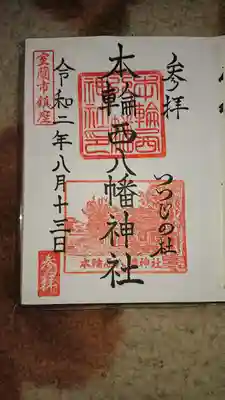 参拝
つつじの社
本輪西八幡神社
本輪西八幡神社
室蘭市鎮座
令和二年八月十三日
参拝